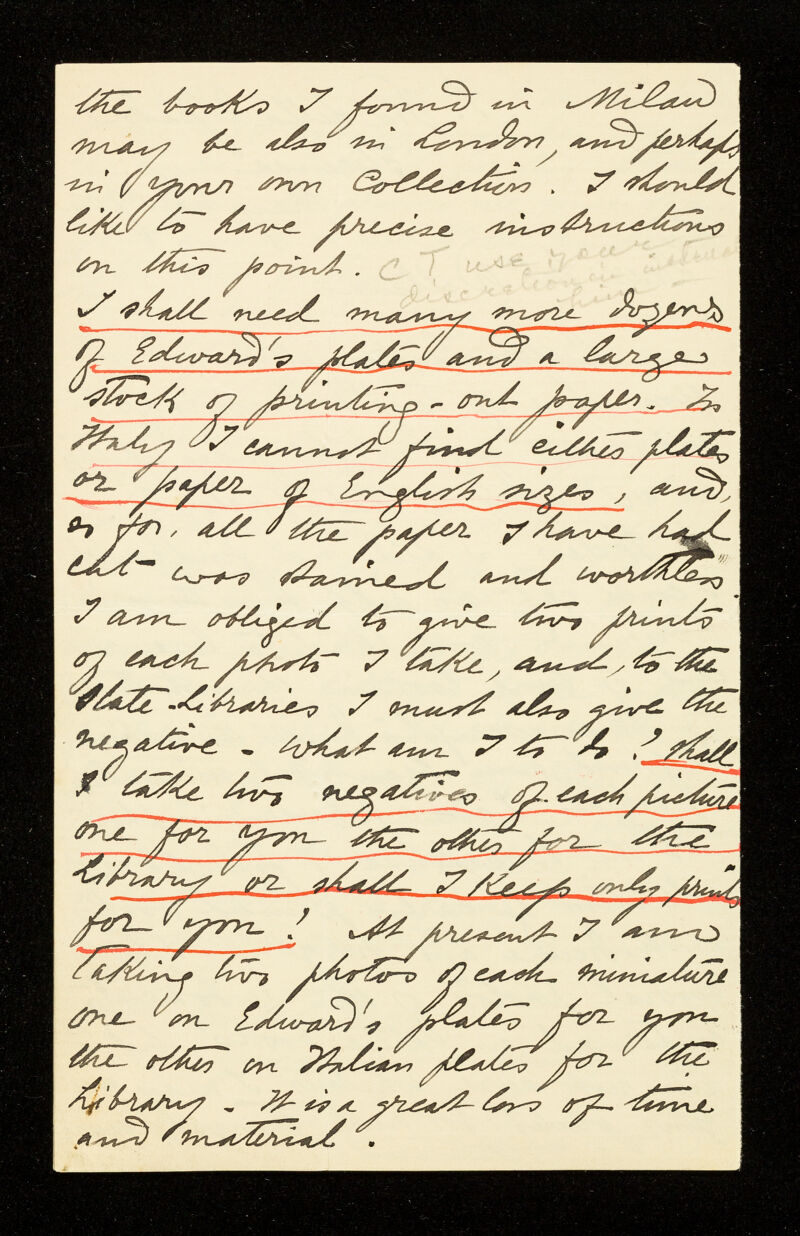 the books I found in Milan
may be also in London, and perhaps
in your own Collection. I should
like to have precise instructions
on this point.
C T use your
discretion in
him
I shall need many more dozens
of Edward's plates and a large
stock of printing-out paper. In
Italy I cannot find either plates
or paper of English sizes, and,
so far, all the paper I have had
cut was stained and worthless.
I am obliged to give two prints
of each photo I take, and, to the
State-Libraries I must also give the
negative - What am I to do? Shall
I take two negatives of each picture
one for you the other for the
Library or shall I keep only prints
for you? At present I am
taking two photos of each miniature
one on Edward's plates for you
the other on Italian plates for the
Library - It is a great loss of time
and material.